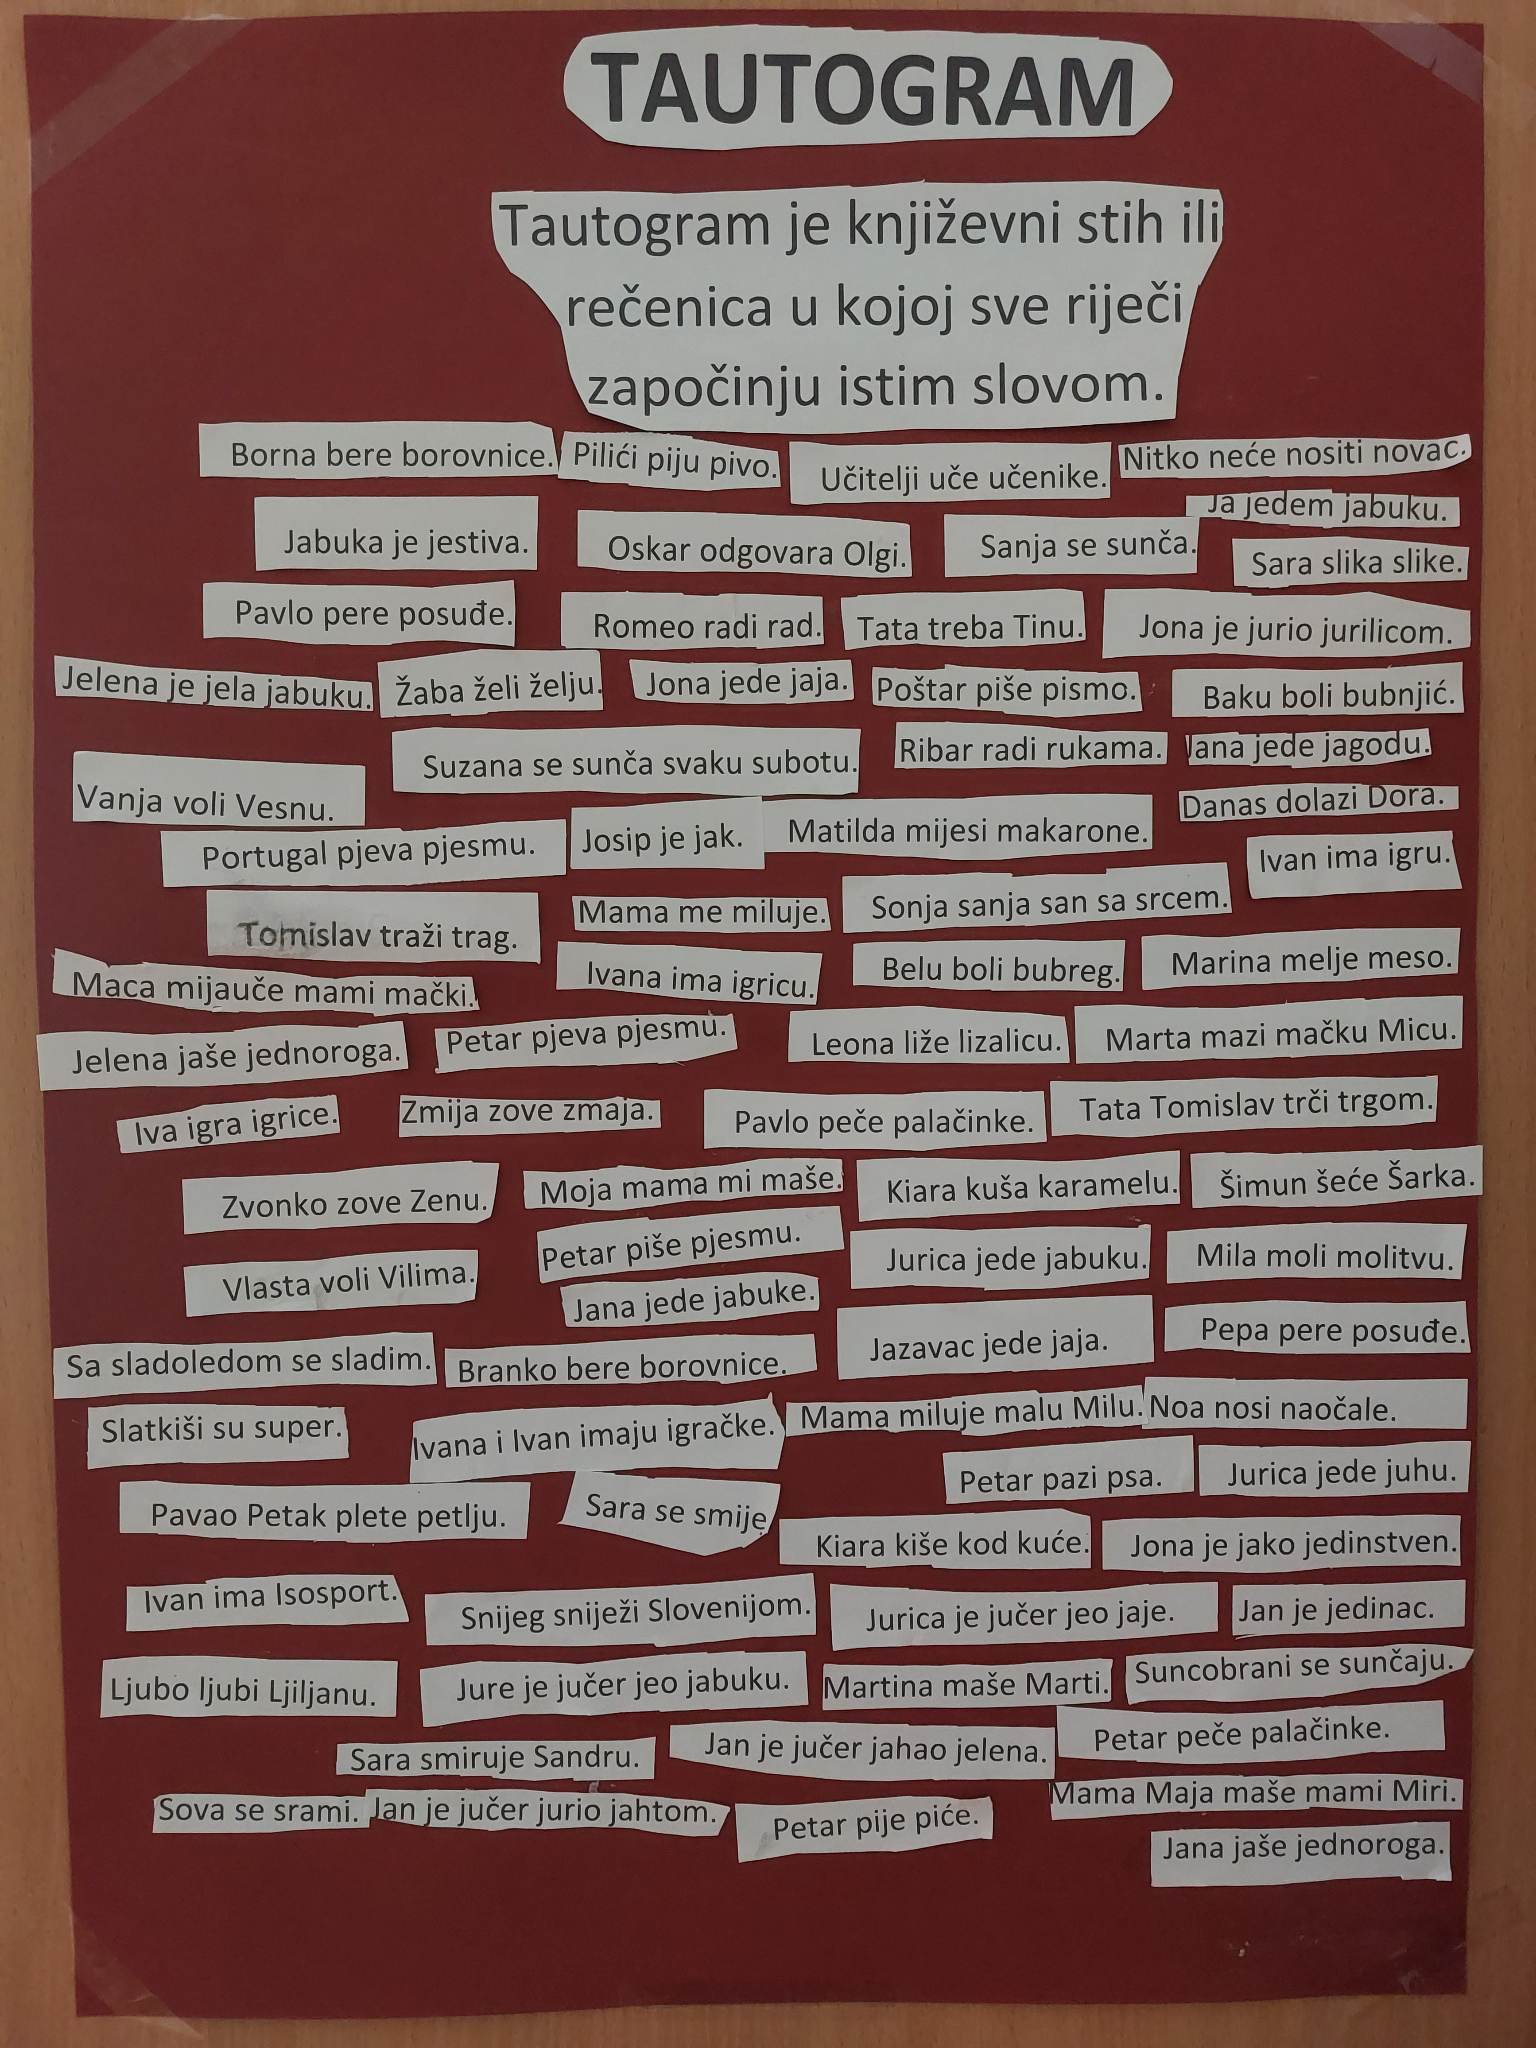 TAUTOGRAM
Tautogram je književni stih ili
rečenica u kojoj sve riječi
započinju istim slovom.
Borna bere borovnice.
Pilići piju pivo.
Učitelji uče učenike.
Nitko neće nositi novac.
Ja jedem jabuku.
Jabuka je jestiva.
Oskar odgovara Olgi.
Sanja se sunča.
Sara slika slike.
Pavlo pere posuđe.
Romeo radi rad.
Tata treba Tinu.
Jona je jurio jurilicom.
Jelena je jela jabuku.
Žaba želi želju.
Jona jede jaja.
Poštar piše pismo.
Baku boli bubnjić.
Suzana se sunča svaku subotu.
Ribar radi rukama.
Jana jede jagodu.
Vanja voli Vesnu.
Danas dolazi Dora.
Portugal pjeva pjesmu.
Josip je jak.
Matilda mijesi makarone.
Ivan ima igru.
Tomislav traži trag.
Mama me miluje.
Sonja sanja san sa srcem.
Maca mijauče mami mački.
Ivana ima igricu.
Belu boli bubreg.
Marina melje meso.
Jelena jaše jednoroga.
Petar pjeva pjesmu.
Leona liže lizalicu.
Marta mazi mačku Micu.
Iva igra igrice.
Zmija zove zmaja.
Pavlo peče palačinke.
Tata Tomislav trči trgom.
Zvonko zove Zenu.
Moja mama mi maše.
Kiara kuša karamelu.
Šimun šeće Šarka.
Petar piše pjesmu.
Jurica jede jabuku.
Mila moli molitvu.
Vlasta voli Vilima.
Jana jede jabuke.
Jazavac jede jaja.
Pepa pere posuđe.
Sa sladoledom se sladim.
Branko bere borovnice.
Slatkiši su super.
Ivana i Ivan imaju igračke.
Mama miluje malu Milu.
Noa nosi naočale.
Petar pazi psa.
Jurica jede juhu.
Pavao Petak plete petlju.
Sara se smije
Kiara kiše kod kuće.
Jona je jako jedinstven.
Ivan ima Isosport.
Snijeg sniježi Slovenijom.
Jurica je jučer jeo jaje.
Jan je jedinac.
Ljubo ljubi Ljiljanu.
Jure je jučer jeo jabuku.
Martina maše Marti.
Suncobrani se sunčaju.
Sara smiruje Sandru.
Jan je jučer jahao jelena.
Petar peče palačinke.
Sova se srami.
Jan je jučer jurio jahtom.
Petar pije piće.
Mama Maja maše mami Miri.
Jana jaše jednoroga.